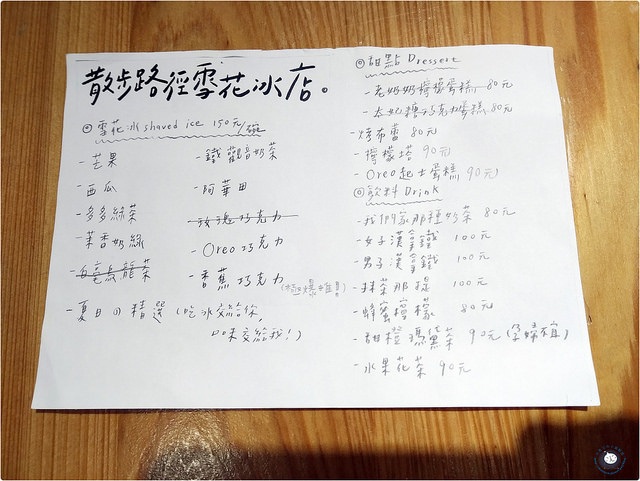 散步路徑雪花冰店。
◎雪花冰 shaved ice 150元/碗
-芒果
-西瓜
-多多綠茶
-茉香奶綠
-白毫烏龍茶
-夏日の精選(吃冰交給你,
口味交給我!)
-鐵觀音奶茶
-阿華田
-玫瑰巧克力
-Oreo巧克力
-香蕉巧克力
◎甜點 Dressert
-老奶奶檸檬蛋糕 80元
-太妃糖巧克力蛋糕 80元
-烤布蕾 80元
-檸檬塔 90元
-Oreo起士蛋糕 90元
◎飲料 Drink
-我們家那種奶茶 80元
-女子漢拿鐵 100元
-男子漢拿鐵 100元
-抹茶那提 100元
-蜂蜜檸檬 80元
-甜橙瑪黛茶 90元(孕婦不宜)
-水果花茶 90元